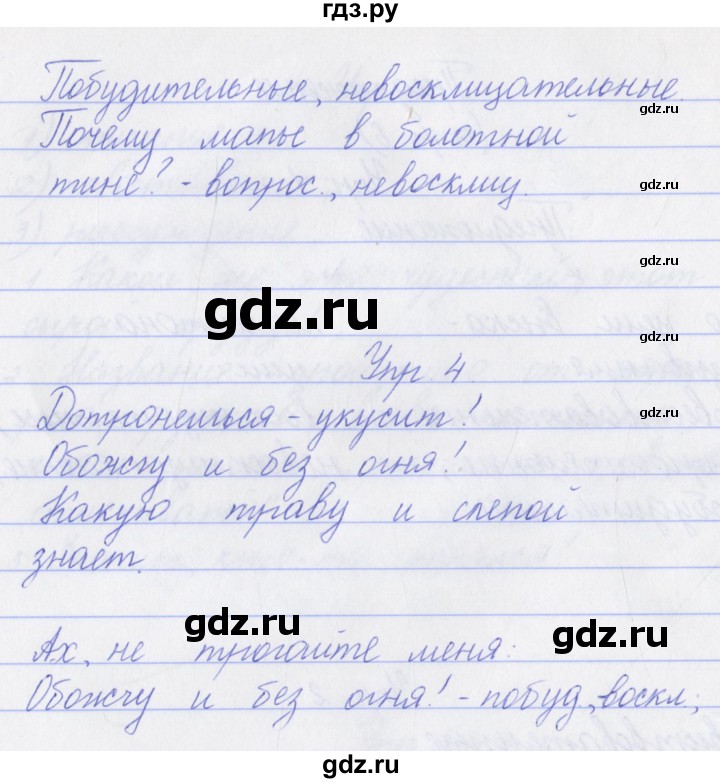 гдз.ру
Побудительные, невосклицательные.
gdz.ru
Почему лапы в болотной
gdz.ru
тине? - вопрос., невосклиц.
gdz.ru
gdz.ru
gdz.ru
gdz.ru
Упр. 4
gdz.ru
Дотронешься - укусит!
gdz.ru
Обожгу и без огня!
gdz.ru
Какую траву и слепой
знает.
gdz.ru
gdz.ru
Ах, не трогайте меня:
Обожгу и без огня! - побуд., воскл.;
gdz.ru